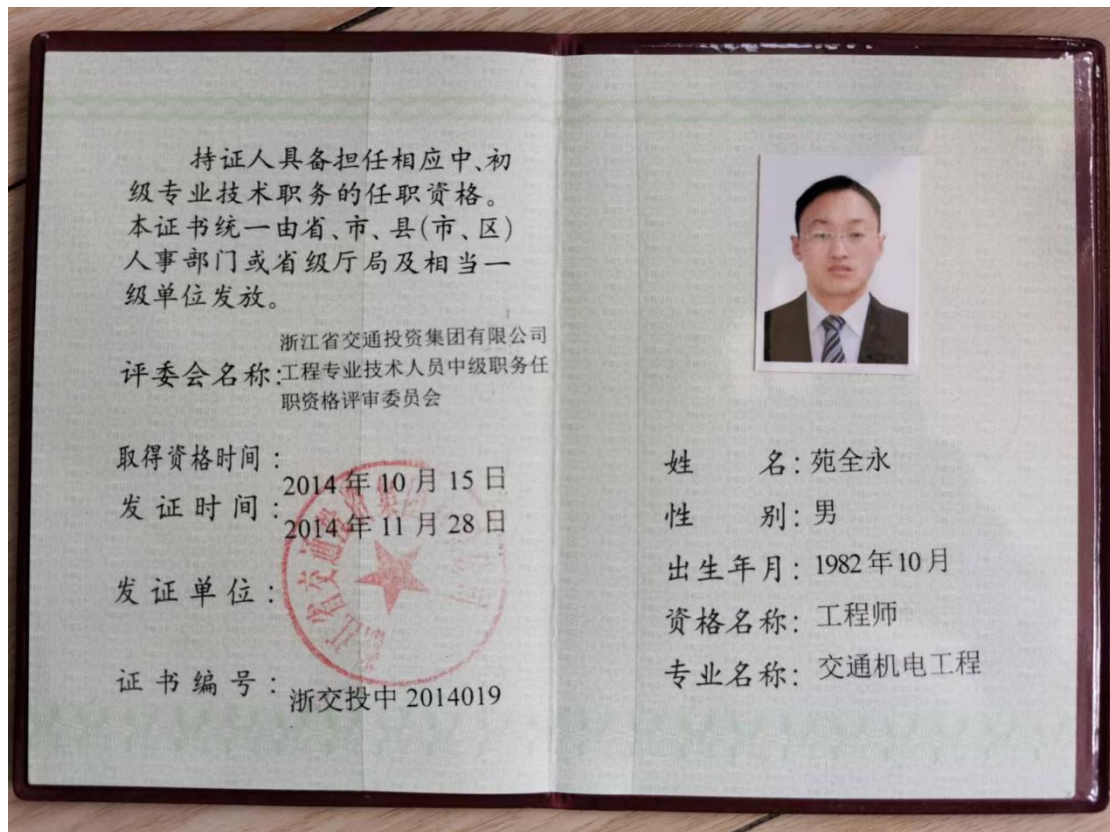 持证人具备担任相应中、初
级专业技术职务的任职资格。
本证书统一由省、市、县(市、区)
人事部门或省级厅局及相当一
级单位发放。
评委会名称:
浙江省交通投资集团有限公司
工程专业技术人员中级职务任
职资格评审委员会
取得资格时间:
2014年10月15日
发证时间:
2014年11月28日
发证单位:
证书编号:
浙交投中2014019
姓 名:苑全永
性 别:男
出生年月:1982年10月
资格名称:工程师
专业名称:交通机电工程